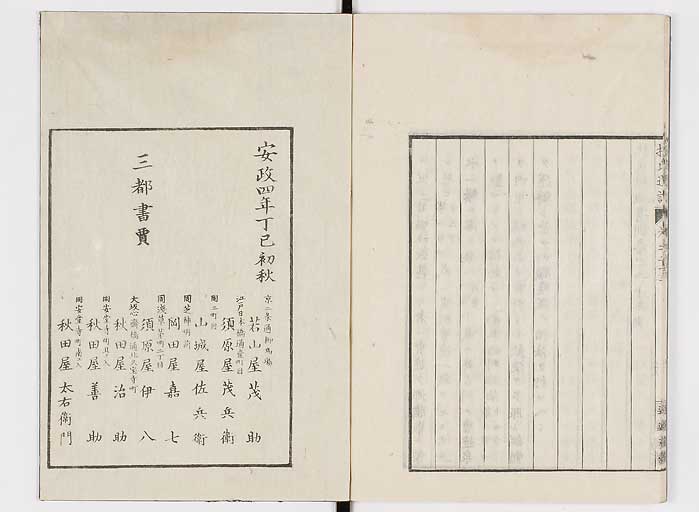 安政四年丁巳初秋
三都書賈
京二条通柳馬場
若山屋茂助
江戸日本橋通壱町目
須原屋茂兵衛
同二町目
山城屋佐兵衛
同芝神明前
岡田屋嘉七
同浅草茅町二丁目
須原屋伊八
大坂心斎橋通北久宝寺町
秋田屋治助
同安堂寺町北ヘ入
秋田屋善助
同安堂寺町南ヘ入
秋田屋太右衛門